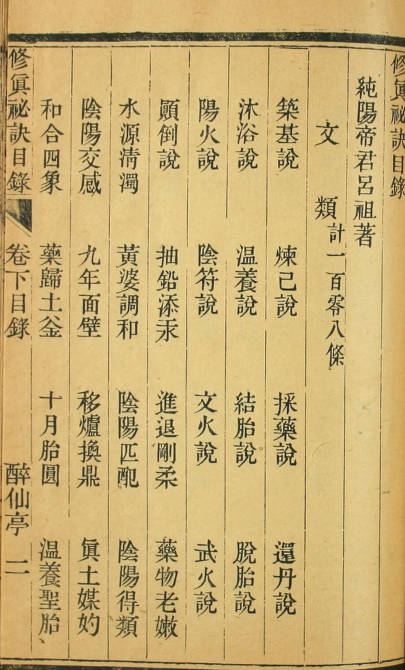 修眞祕訣目錄
純陽帝君呂祖著
文類計一百零八條
築基說 煉己說 採藥說 還丹說
沐浴說 溫養說 結胎說 脫胎說
陽火說 陰符說 文火說 武火說
顚倒說 抽鉛添汞 進退剛柔 藥物老嫩
水源清濁 黃婆調和 陰陽匹配 陰陽得類
陰陽交感 九年面壁 移爐換鼎 眞土媒妁
和合四象 藥歸土釜 十月胎圓 溫養聖胎
修眞祕訣目錄 卷下目錄 醉仙亭 二